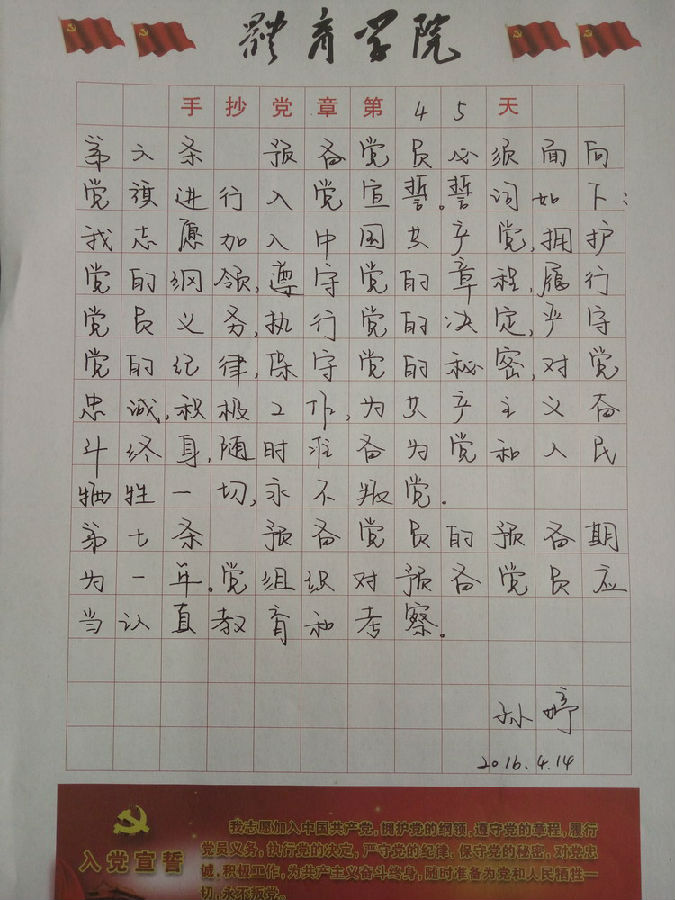 體育学院
手抄党章第45天
第六条 预备党员必须面向
党旗进行入党宣誓。誓词如下:
我志愿加入中国共产党,拥护
党的纲领,遵守党的章程,履行
党员义务,执行党的决定,严守
党的纪律,保守党的秘密,对党
忠诚,积极工作,为共产主义奋
斗终身,随时准备为党和人民
牺牲一切,永不叛党.
第七条 预备党员的预备期
为一年.党组织对预备党员应
当认真教育和考察.
孙婷
2016.4.14
入党宣誓
我志愿加入中国共产党,拥护党的纲领,遵守党的章程,履行
党员义务,执行党的决定,严守党的纪律,保守党的秘密,对党忠
诚,积极工作,为共产主义奋斗终身,随时准备为党和人民牺牲一
切,永不叛党。